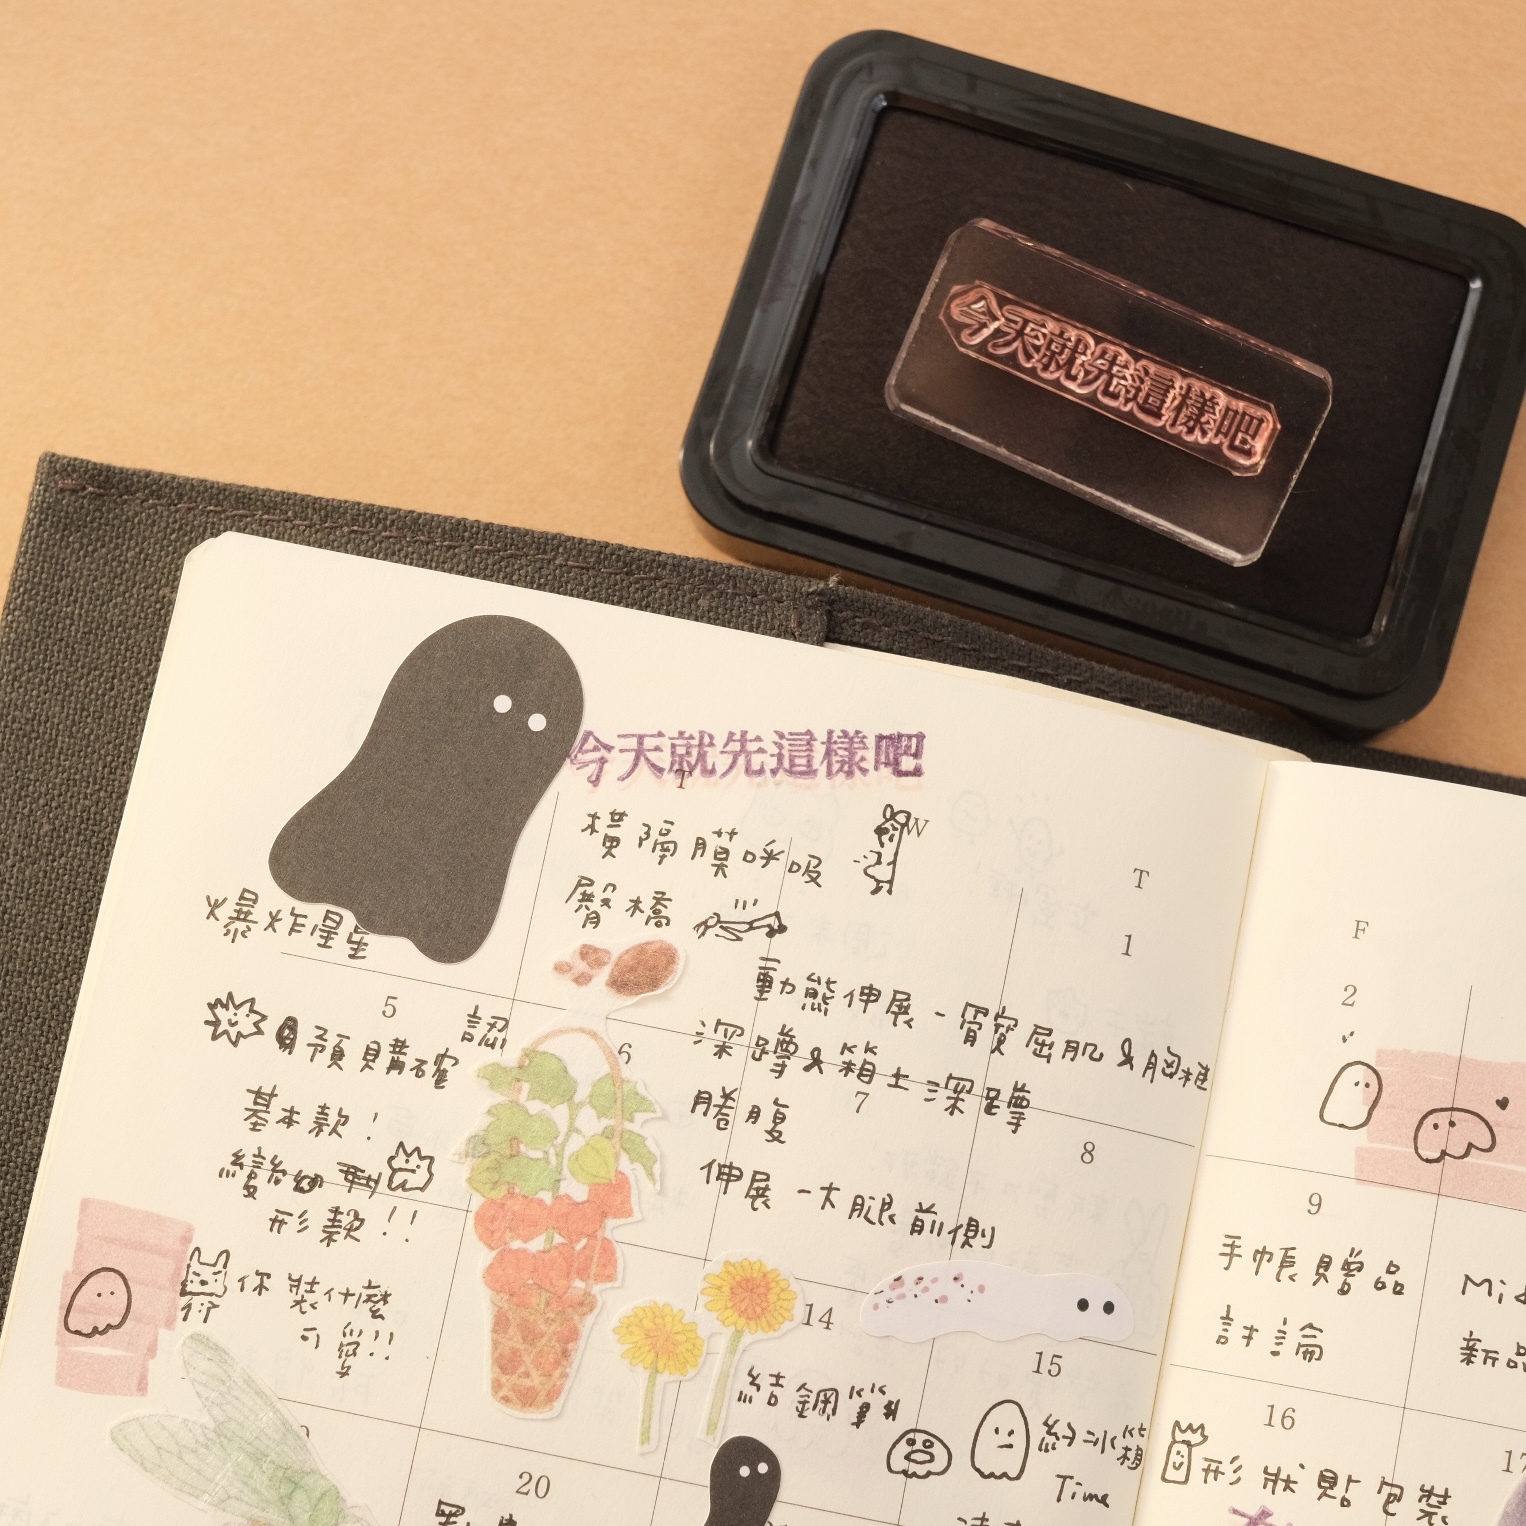 今天就先這樣吧
今天就先這樣吧
T
W
T
F
橫隔膜呼吸
臀橋
爆炸星星
1
2
動態伸展-髂腰屈肌&胸椎
深蹲&箱上深蹲
捲腹
伸展-大腿前側
5
6
7
8
9
認
預購確
基本款!
變
形款!!
你裝什麼
可愛!!
手帳贈品
討論
新品
14
15
16
17
結鋼筆
冰箱
Time
形狀貼包裝
20